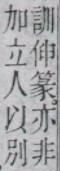 訓伸篆。亦非
加立人以别